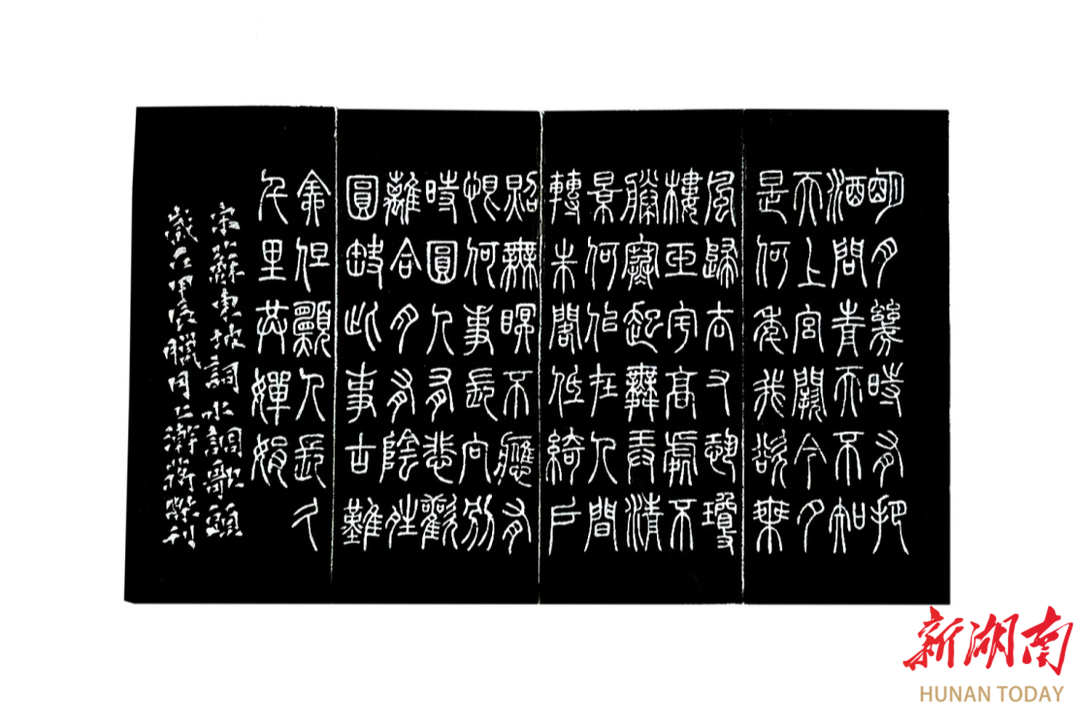 明月幾時有把
酒問青天不知
天上宮闕今夕
是何年我欲乘
風歸去又恐瓊
樓玉宇高處不
勝寒起舞弄清
景何似在人間
轉朱閣低綺戶
照無眠不應有
恨何事長向別
時圓人有悲歡
離合月有陰晴
圓缺此事古難
全但願人長久
千里共嬋娟
宋蘇東坡詞水調歌頭
歲在甲辰臘月上澣蔣刊
新湖南
HUNAN TODAY